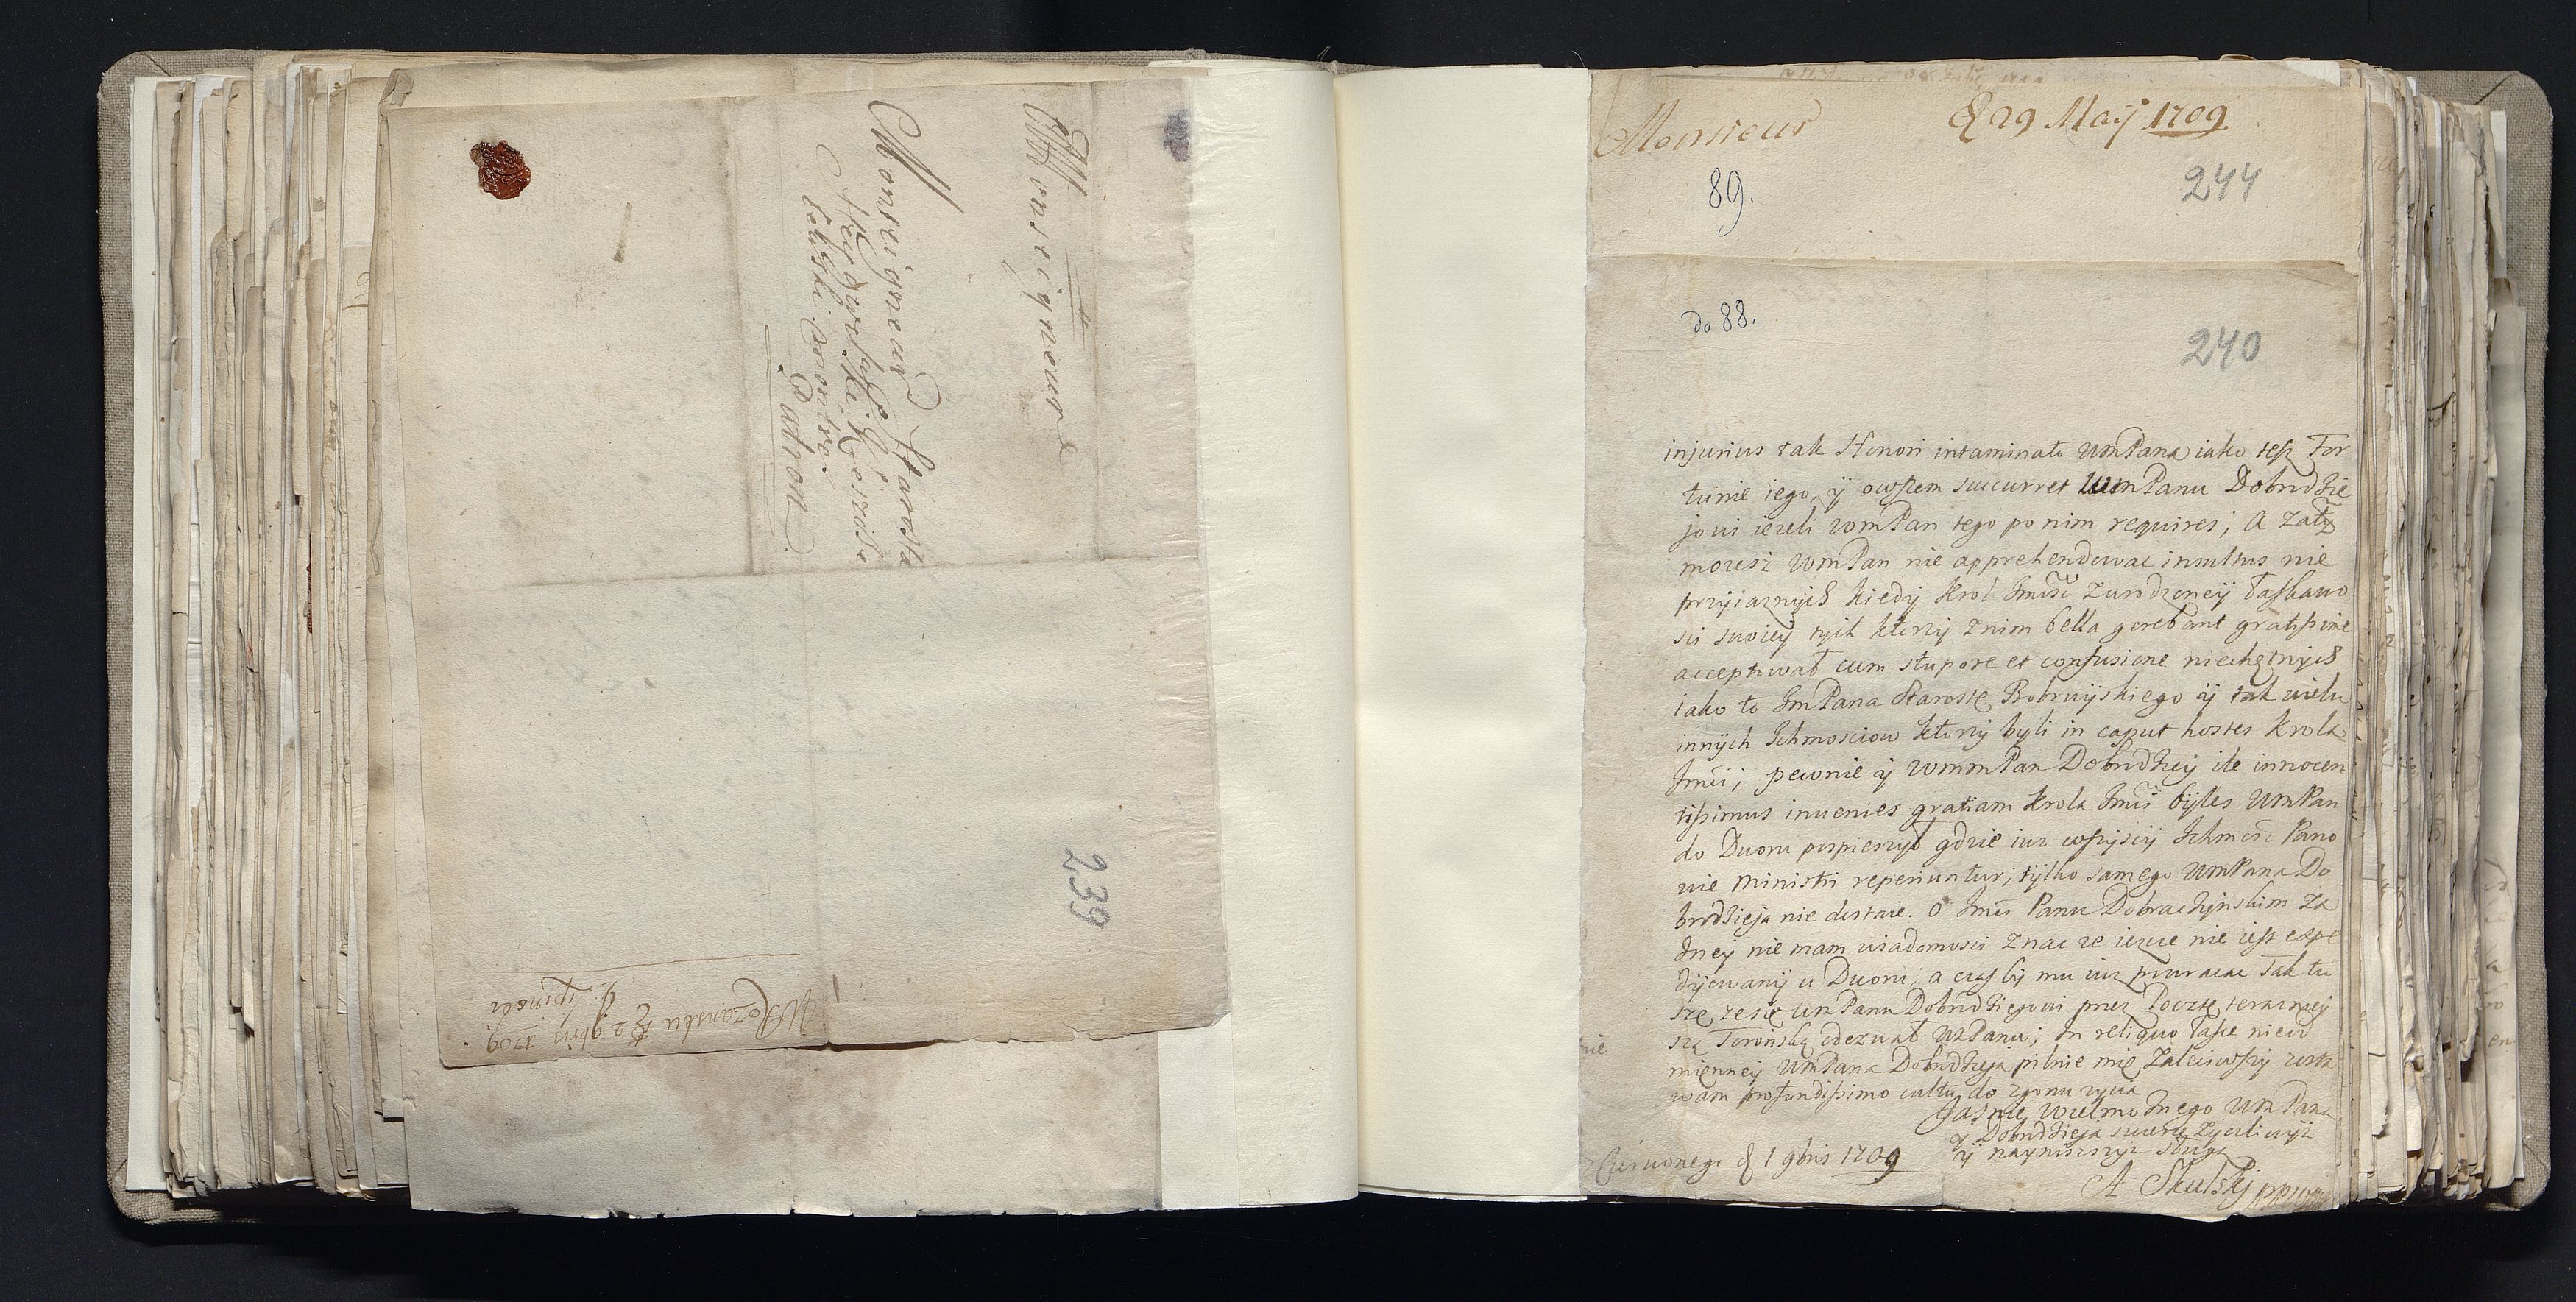 Monseigneur
Monseigneur
Patron
239
W Rozansku d 2 9bris 1709.
Monsieur
d 29 Maij 1709
89.
244
do 88.
240
injurius tak Honori intaminato WmPana iako tesz For
tunie iego, ÿ owszem succurret WmPanu Dobrodzie
jowi iezeli WmPan tego po nim requires; A zatÿ
mozesz WmPan nie apprehendowac insultus nie
przyiaznych kiedy Krol Jmśc z urodzoney łaskawo
sci swoiey tych ktorzy z nim bella gerebant gratissime
acceptował cum stupore et confusione niechętnych
iako to JmPana Staroste Bobruyskiego ÿ tak wielu
innÿch Ichmosciow ktorzy byli in caput hostes Krola
Jmści; pewnie ÿ WmmPan Dobrodziey ile innocen
tissimus invenies gratiam Krola Jmśi byles WmPan
do Dworu pospieszył gdzie iuz wszyscy Ichmość Pano
wie Ministri reperiuntur; tylko samego WmPana Do
brodzieja nie dostaie. O Jmśi Panu Dobraczynskim za
dney nie mam wiadomosci znac ze iescze nie iest expe
dyowany u Dworu; a czas by mu iuz powracac Tak tu
szę ze się WmPanu Dobrodziejowi przez Pocztę terazniey
szą Torońską odezwał WmPanu; In reliquo łasce niew
mienney WmPana Dobrodzieja pilnie mię zaleciwszy zosta
wam profundissimo cultu do zgonu zycia
Jasnie Wielmoznego WmPana
ÿ Dobrodzieja szczerze zyczliwym
ÿ naynizszym sługą
A Skulski
d 1 9bris 1709